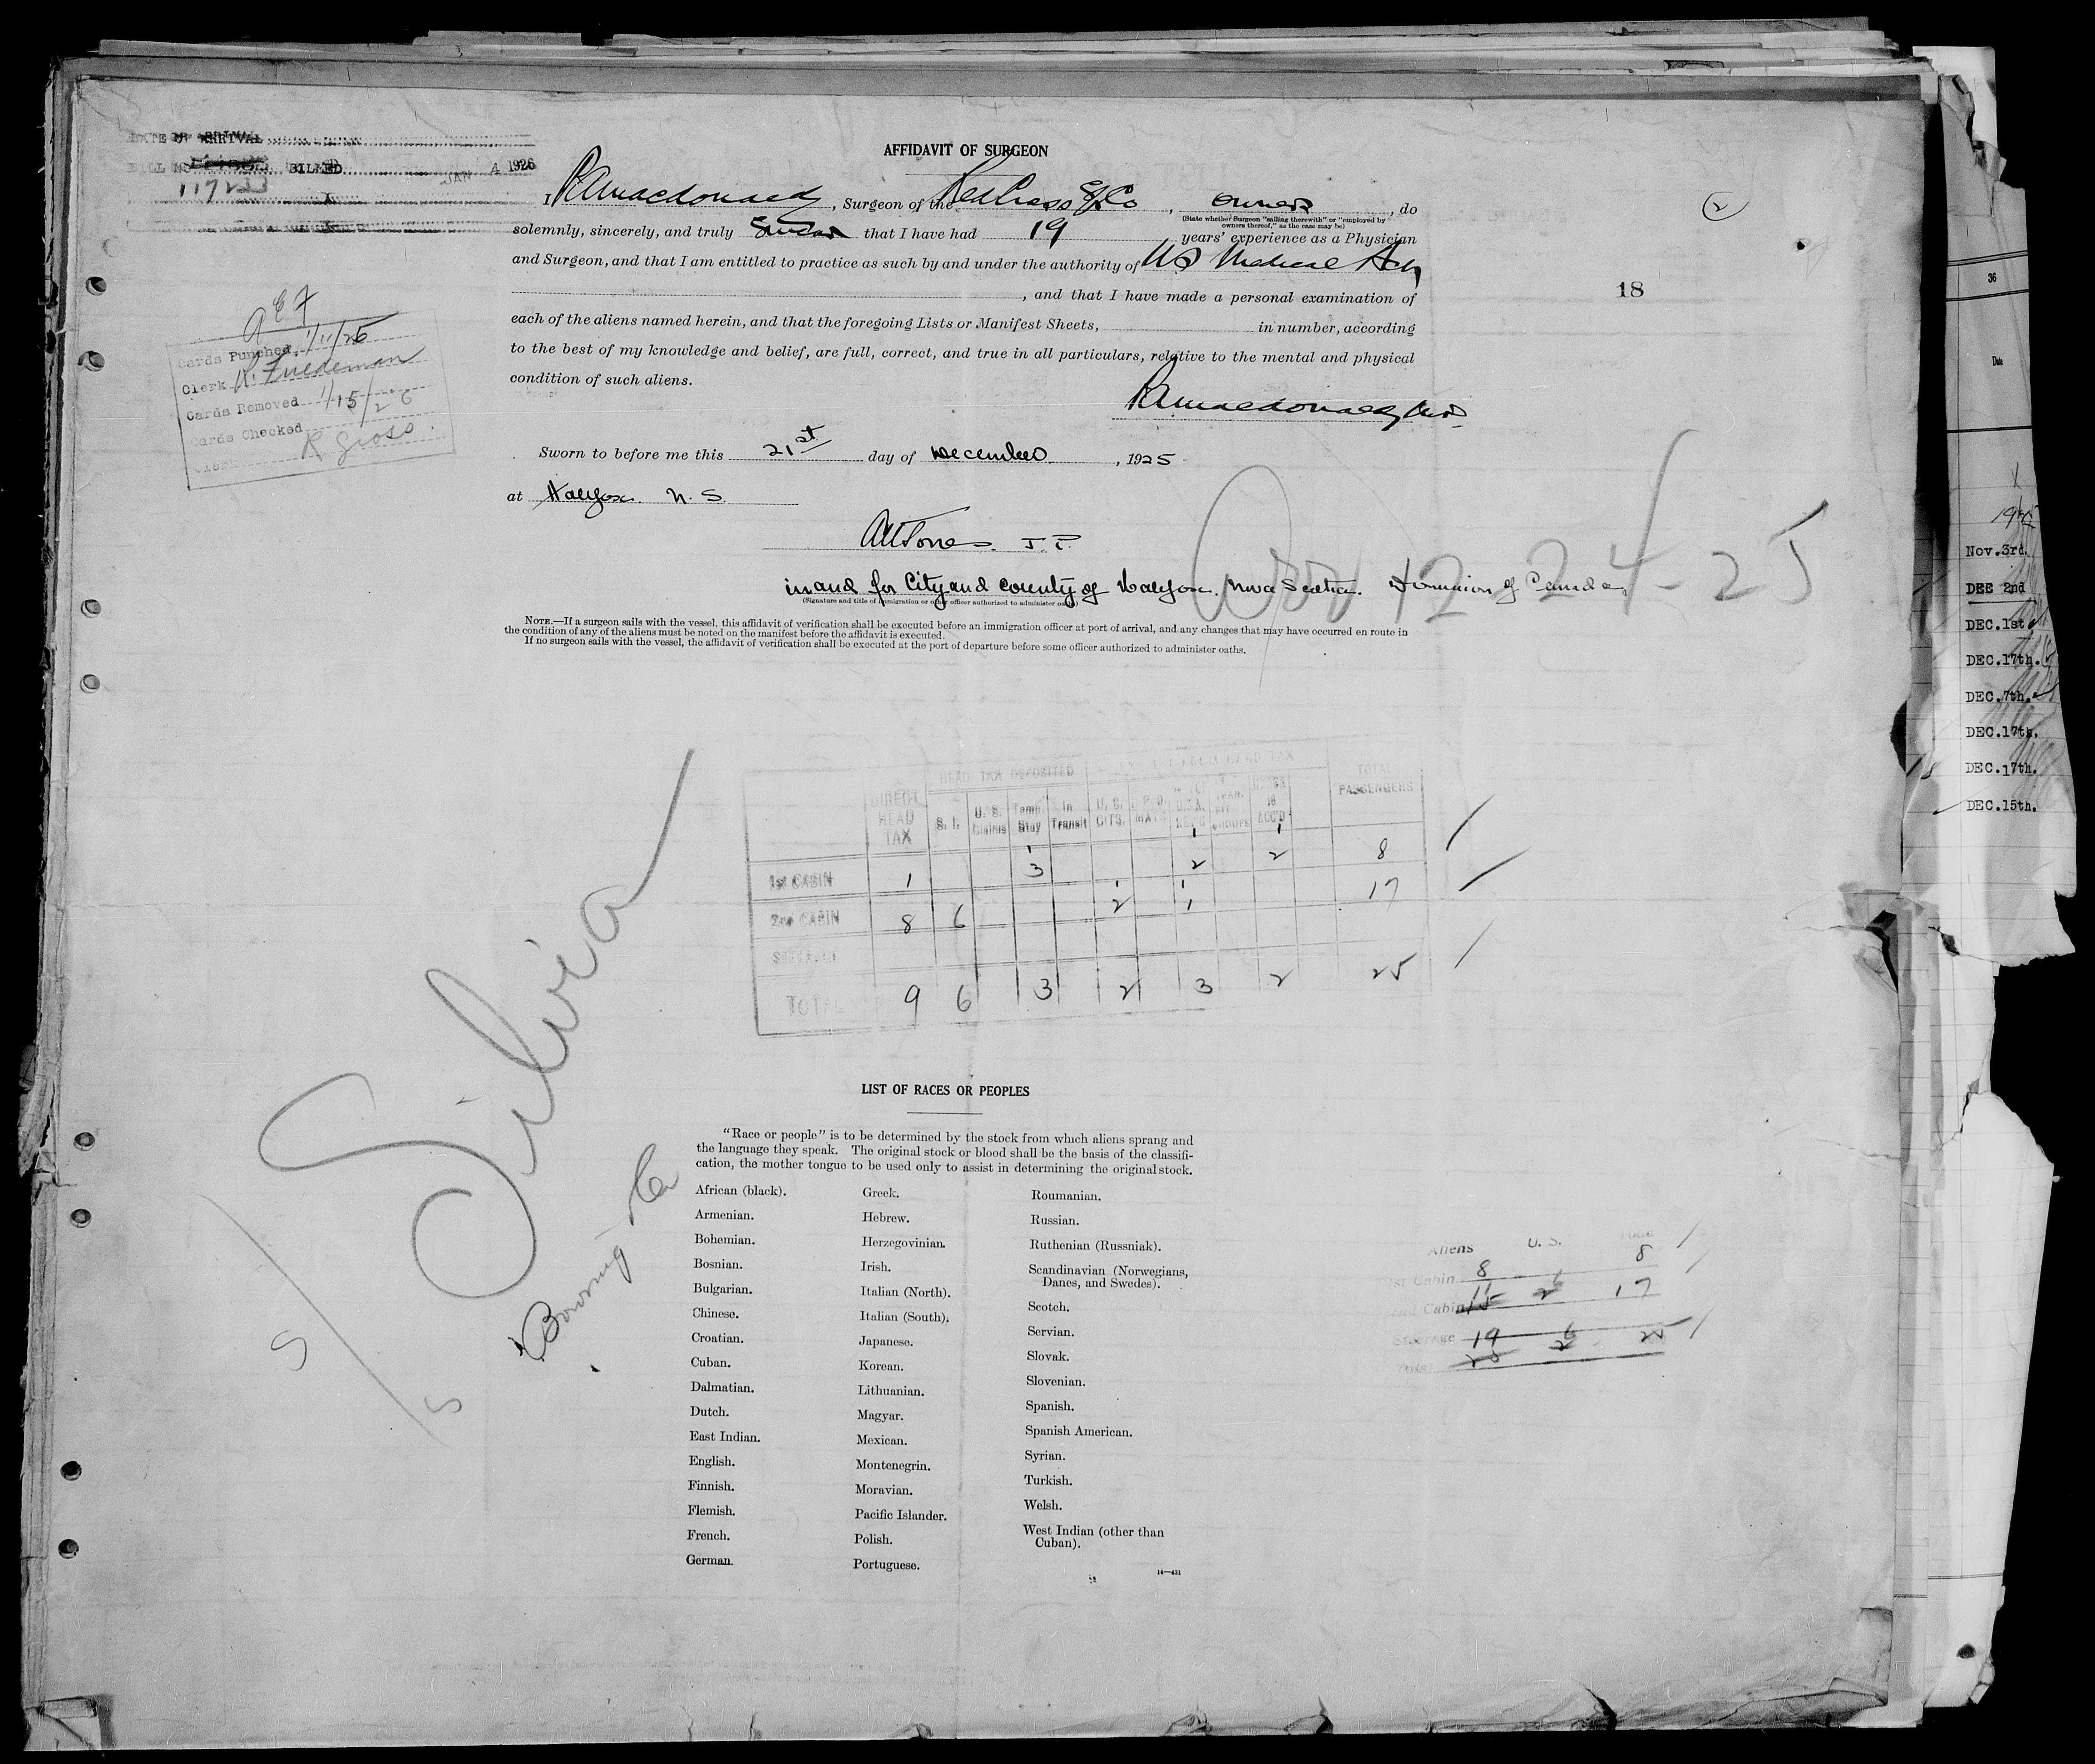 DATE OF ARRIVAL
BILL NO. BILLED JAN 1926
117233
AFFIDAVIT OF SURGEON
I, RAMacdonald, Surgeon of the Red Cross SS Co, owners, do
(State whether Surgeon "sailing therewith" or "employed by
owners thereof," as the case may be)
solemnly, sincerely, and truly Swear that I have had 19 years' experience as a Physician
and Surgeon, and that I am entitled to practice as such by and under the authority of NS Medical Act
, and that I have made a personal examination of
each of the aliens named herein, and that the foregoing Lists or Manifest Sheets, in number, according
to the best of my knowledge and belief, are full, correct, and true in all particulars, relative to the mental and physical
condition of such aliens.
RAMacdonald, M.D.
2
18
Cards Punched 1/11/26
Clerk Friedeman
Cards Removed 1/15/26
Cards Checked
Clerk R Gross.
Sworn to before me this 21st day of December, 1925
at Halifax N. S.
J. P.
in and for City and County of Halifax. Nova Scotia. Dominion of Canada
(Signature and title of immigration or other officer authorized to administer oaths)
12-24-25
NOTE.—If a surgeon sails with the vessel, this affidavit of verification shall be executed before an immigration officer at port of arrival, and any changes that may have occurred en route in
the condition of any of the aliens must be noted on the manifest before the affidavit is executed.
If no surgeon sails with the vessel, the affidavit of verification shall be executed at the port of departure before some officer authorized to administer oaths.
HEAD TAX DEPOSITED EXEMPT FROM HEAD TAX
DIRECT HEAD TAX S. I. U. S. Claims Temp. Stay In Transit U. S. CITS. TOTAL PASSENGERS
1st CABIN 1 3 2 2 8
2nd CABIN 8 6 2 1 17
STEERAGE
TOTAL 9 6 3 2 3 2 25
S/S Silvia
Bowring & Co
LIST OF RACES OR PEOPLES
"Race or people" is to be determined by the stock from which aliens sprang and
the language they speak. The original stock or blood shall be the basis of the classifi-
cation, the mother tongue to be used only to assist in determining the original stock.
African (black).
Armenian.
Bohemian.
Bosnian.
Bulgarian.
Chinese.
Croatian.
Cuban.
Dalmatian.
Dutch.
East Indian.
English.
Finnish.
Flemish.
French.
German.
Greek.
Hebrew.
Herzegovinian.
Irish.
Italian (North).
Italian (South).
Japanese.
Korean.
Lithuanian.
Magyar.
Mexican.
Montenegrin.
Moravian.
Pacific Islander.
Polish.
Portuguese.
Roumanian.
Russian.
Ruthenian (Russniak).
Scandinavian (Norwegians,
Danes, and Swedes).
Scotch.
Servian.
Slovak.
Slovenian.
Spanish.
Spanish American.
Syrian.
Turkish.
Welsh.
West Indian (other than
Cuban).
14—431
Aliens U. S. Total
1st Cabin 8 - 8
2nd Cabin 11 6 17
Steerage
Total 19 6 25
36
Date
Nov.3rd.
DEC 2nd
DEC.1st
DEC.17th.
DEC.7th.
DEC.17th.
DEC.17th.
DEC.15th.